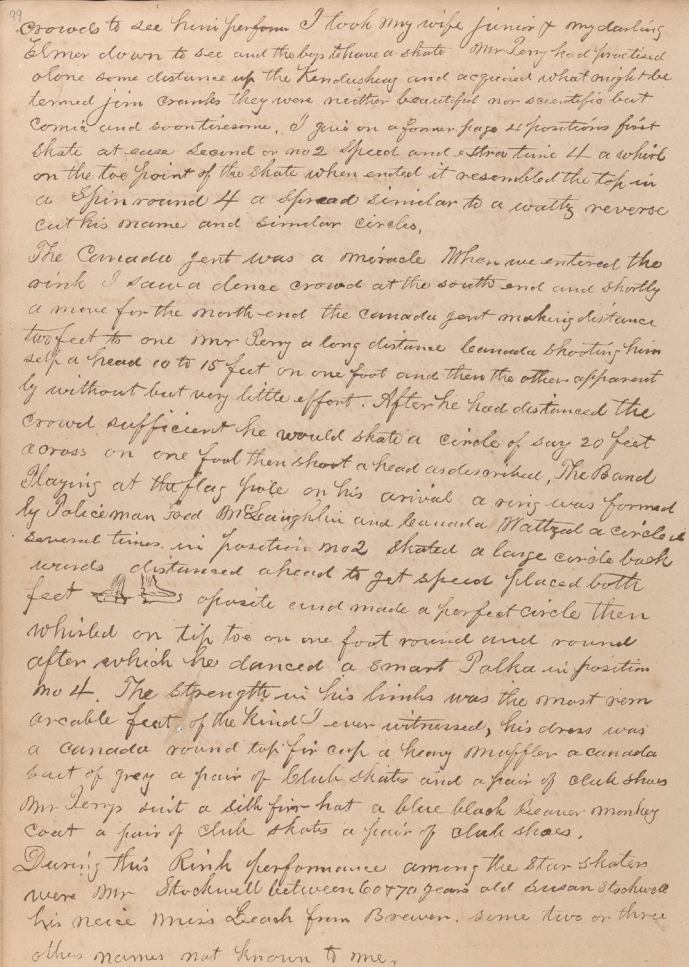 99
crowds to see him perform I took my wife junior & my darling
Elmer down to see and the boys to have a skate Mr Perry had practised
alone some distance up the Kenduskeag and acquired what might be
termed jim cranks they were neither beautiful nor scientific but
comic and soon tiresome. I give on a former page 4 positions first
skate at ease second or no 2 speed and extra tune 4 a whirl
on the toe point of the skate when ended it resembled the top in
a spin round 4 a spread similar to a waltz reverse
cut his name and similar circles.
The Canada gent was a miracle When we entered the
rink I saw a dence crowd at the south end and shortly
a move for the north end the Canada gent making distance
two feet to one Mr Perry a long distance Canada shooting him
self a head 10 to 15 feet on one foot and then the other apparent
ly without but very little effort. After he had distanced the
crowd sufficient he would skate a circle of say 20 feet
across on one foot then shoot a head as described, The Band
Playing at the flag pole on his arival a ring was formed
by Policeman Tood McLaughlin and Canada Waltzed a circle
several times in position no 2 skated a large circle back
wards distanced ahead to get speed placed both
feet oposite and made a perfect circle then
whirled on tip toe on one foot round and round
after which he danced a smart Polka in position
no 4. The strength in his limbs was the most rem
arcable feat of the kind I ever witnessed, his dress was
a canada round top fir cap a heavy muffler a canada
suit of grey a pair of Club skates and a pair of club shoes
Mr Perrys suit a silk fir hat a blue black Beaver monkey
coat a pair of club skates a pair of club shoes.
During this Rink performance among the Star skaters
were Mr Stockwell between 60 & 70 years old Susan Stockwell
his neice Miss Leach from Brewer. some two or three
other names not known to me.